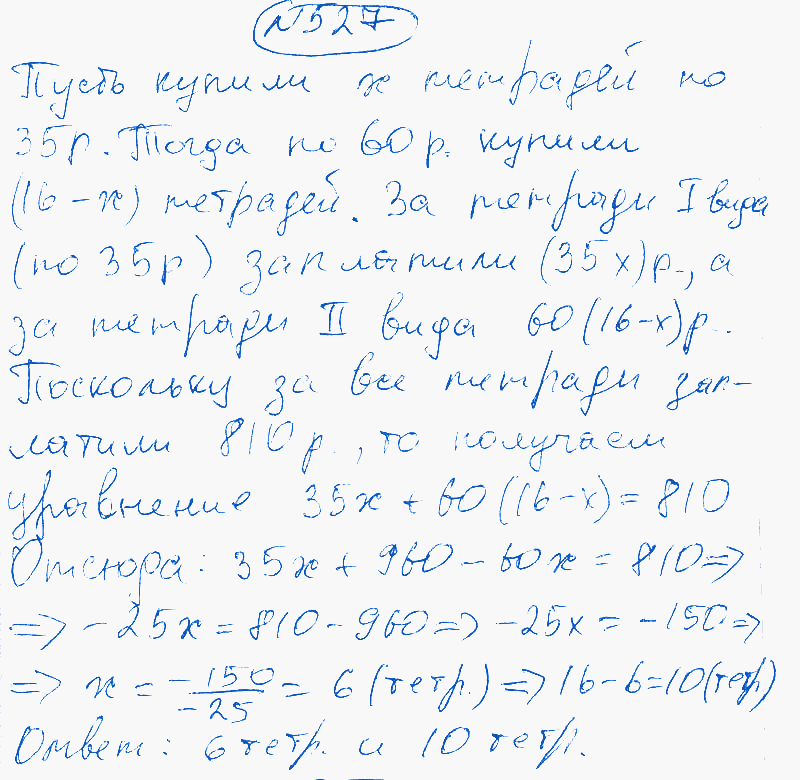 №527
Пусть купили x тетрадей по
35р. Тогда по 60 р. купили
(16-x) тетрадей. За тетради I вида
(по 35р) заплатили (35x)р., а
за тетради II вида 60(16-x)р..
Поскольку за все тетради зап-
латили 810 р., то получаем
уравнение 35x + 60(16-x) = 810
Отсюда: 35x + 960 - 60x = 810 =>
=> -25x = 810 - 960 => -25x = -150 =>
=> x = -150/-25 = 6 (тетр.) => 16-6=10(тетр)
Ответ: 6 тетр. и 10 тетр.